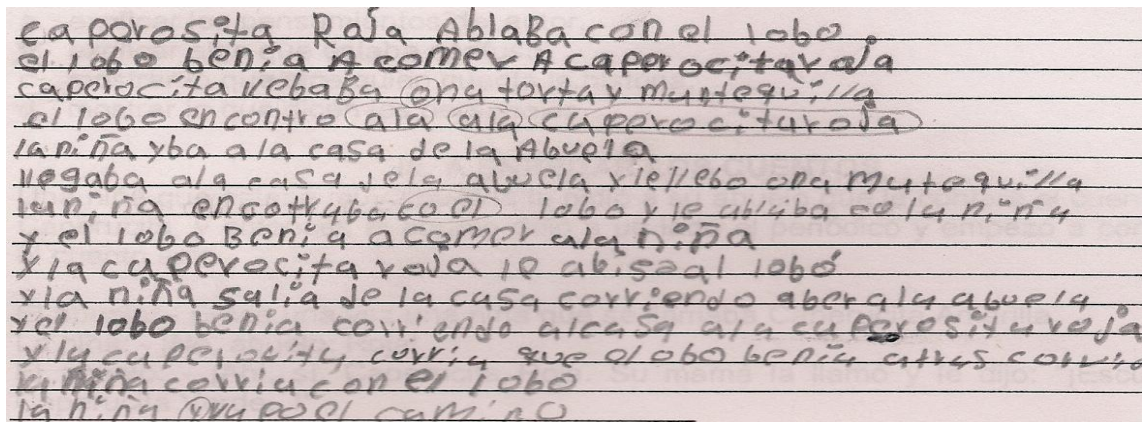 caperosita Raja AblaBa con el lobo.
el lobo benia A comer A caperocitaroja
caperocita llebaBa ona torta y muntequilla
el lobo encontro ala ala caperocituroja
la niña yba a la casa de la Abuela
llegaba ala casa dela abuela y le llebo ona mutequilla
la niña encotraba co el lobo y le ablaba co la niña
y el lobo Benia a comer ala niña
y la caperocita roja le abisa al lobo
y la niña salia de la casa corriendo aber ala abuela
y el lobo benia corriendo alcasa ala caperosita roja
y la caperocita corria que el obo benia atras corrio
la niña corria con el lobo
la niña po el camino